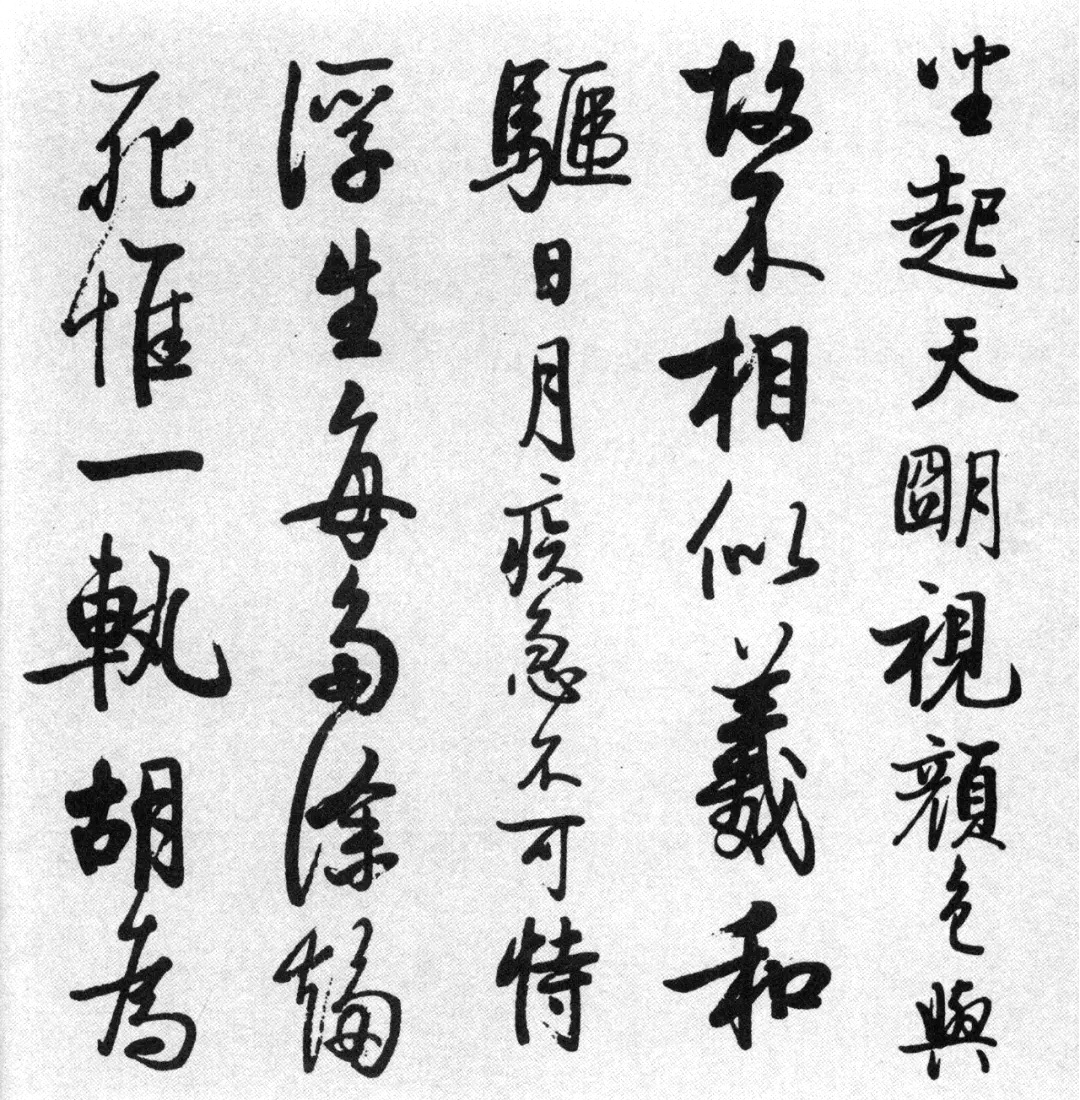 坐起天朙視顔色與
故不相似羲和
驅日月疾急不可恃
浮生每多涂趨
死惟一軌胡為